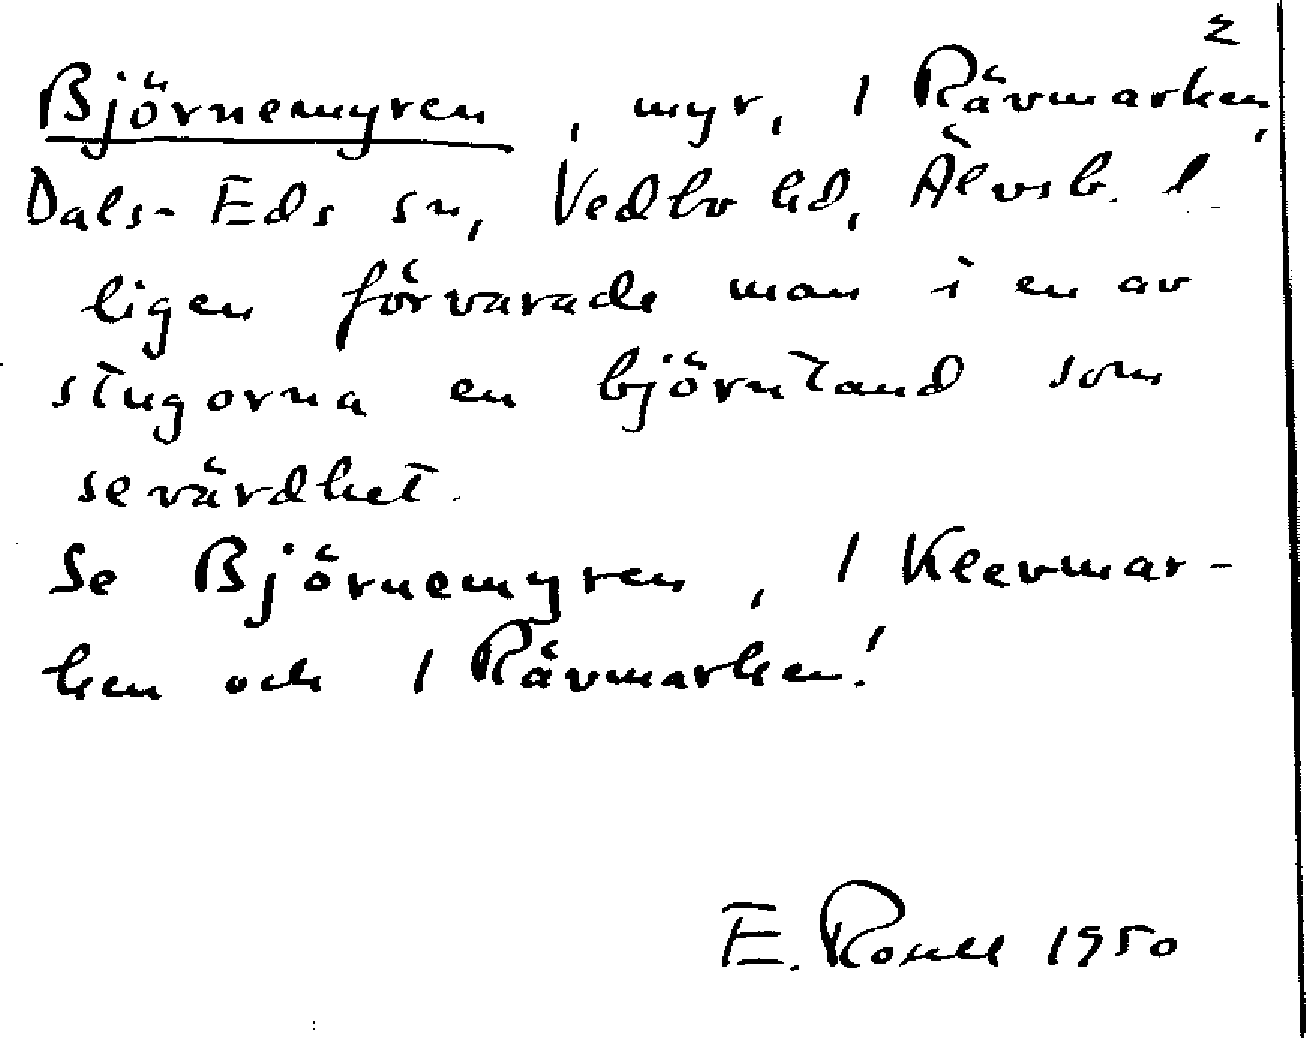 2
Björnemyren, myr, 1 Rävmarken,
Dals-Eds sn, Vedbo hd, Älvsb. l
ligen förvarade man i en av
stugorna en björntand som
sevärdhet.
Se Björnemyren, 1 Klevmar-
ken och 1 Rävmarken!
E. 1950